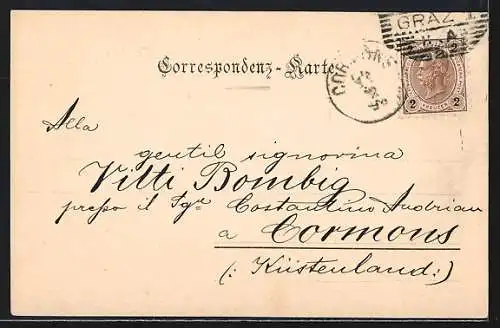 GRAZ 1
Correspondenz-Karte
2 KREUZER 2
Alla
gentil signorina
Vitti Bombig
presso il Sgr Costantino Andrian
a Cormons
(: Küstenland :)